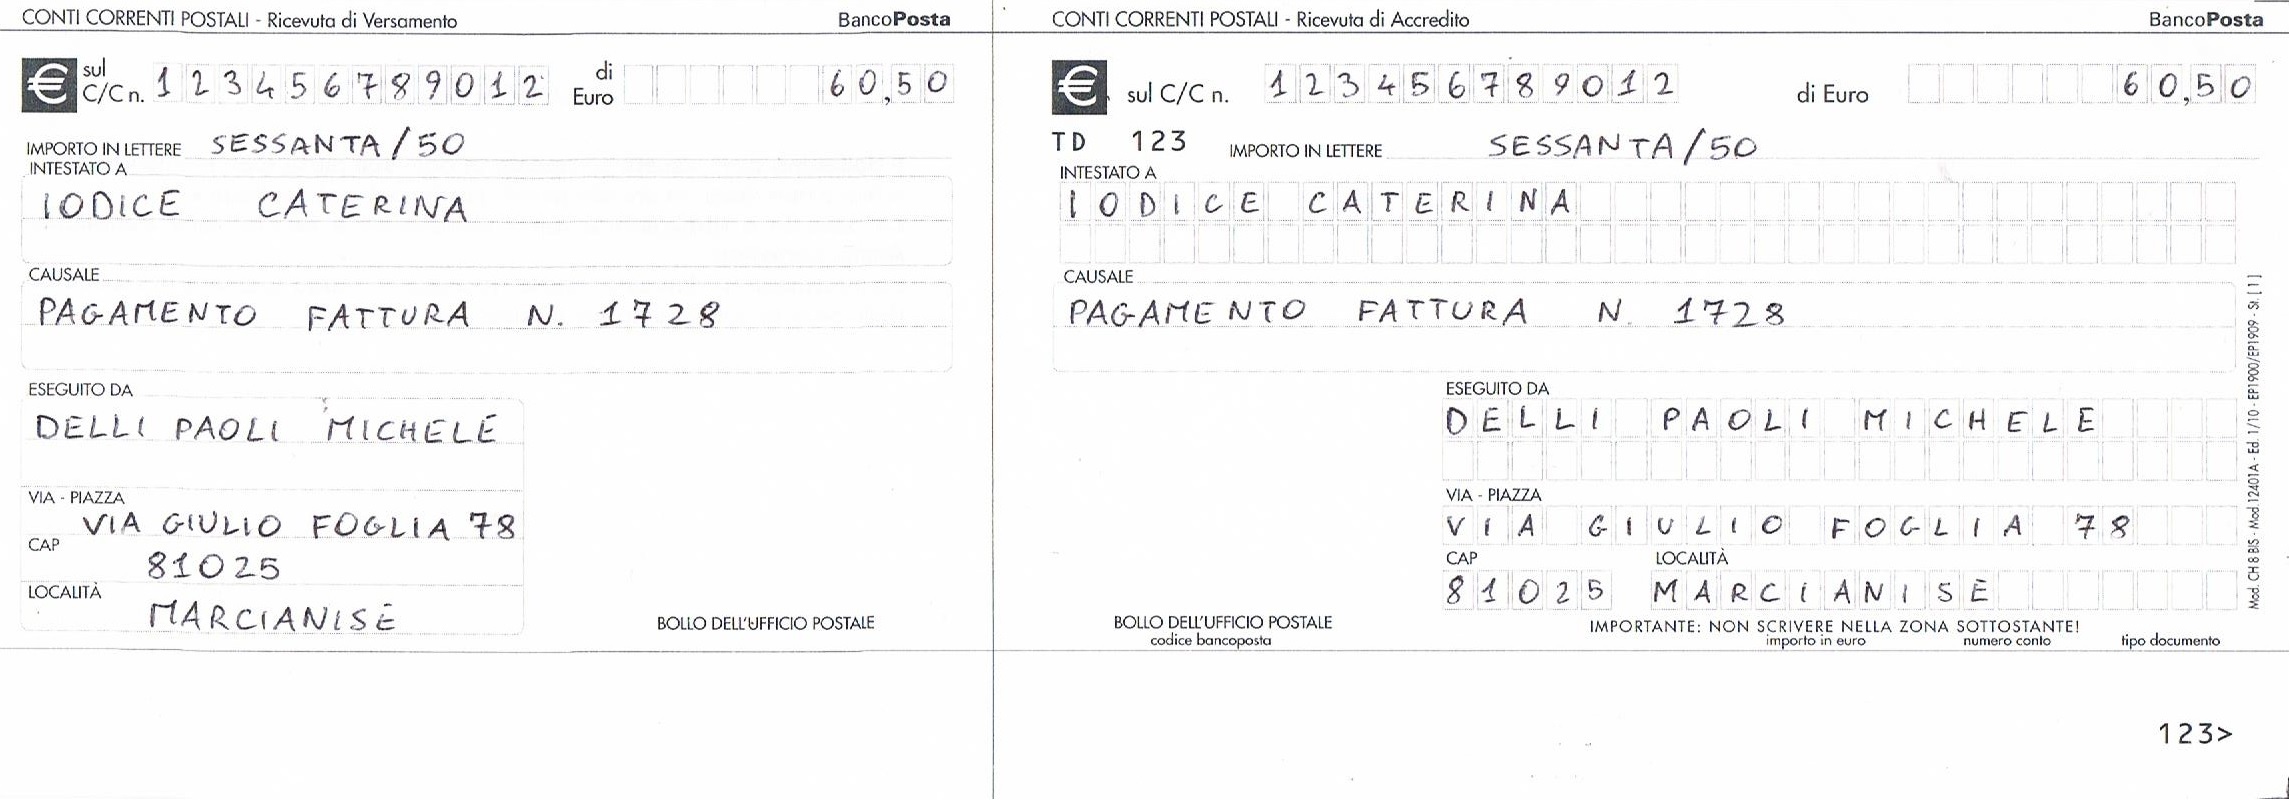 CONTI CORRENTI POSTALI - Ricevuta di Versamento BancoPosta
€ sul C/C n. 123456789012 di Euro 60,50
IMPORTO IN LETTERE SESSANTA/50
INTESTATO A
IODICE CATERINA
CAUSALE
PAGAMENTO FATTURA N. 1728
ESEGUITO DA
DELLI PAOLI MICHELE
VIA - PIAZZA
VIA GIULIO FOGLIA 78
CAP
81025
LOCALITÀ
MARCIANISE
BOLLO DELL'UFFICIO POSTALE
CONTI CORRENTI POSTALI - Ricevuta di Accredito BancoPosta
€ sul C/C n. 123456789012 di Euro 60,50
TD 123 IMPORTO IN LETTERE SESSANTA/50
INTESTATO A
IODICE CATERINA
CAUSALE
PAGAMENTO FATTURA N. 1728
ESEGUITO DA
DELLI PAOLI MICHELE
VIA - PIAZZA
VIA GIULIO FOGLIA 78
CAP LOCALITÀ
81025 MARCIANISE
BOLLO DELL'UFFICIO POSTALE
codice bancoposta
IMPORTANTE: NON SCRIVERE NELLA ZONA SOTTOSTANTE!
importo in euro numero conto tipo documento
Mod. CH 8 BIS - Mod 12401A - Ed. 1/10 - EP1900/EP1909 - St. [1]
123>